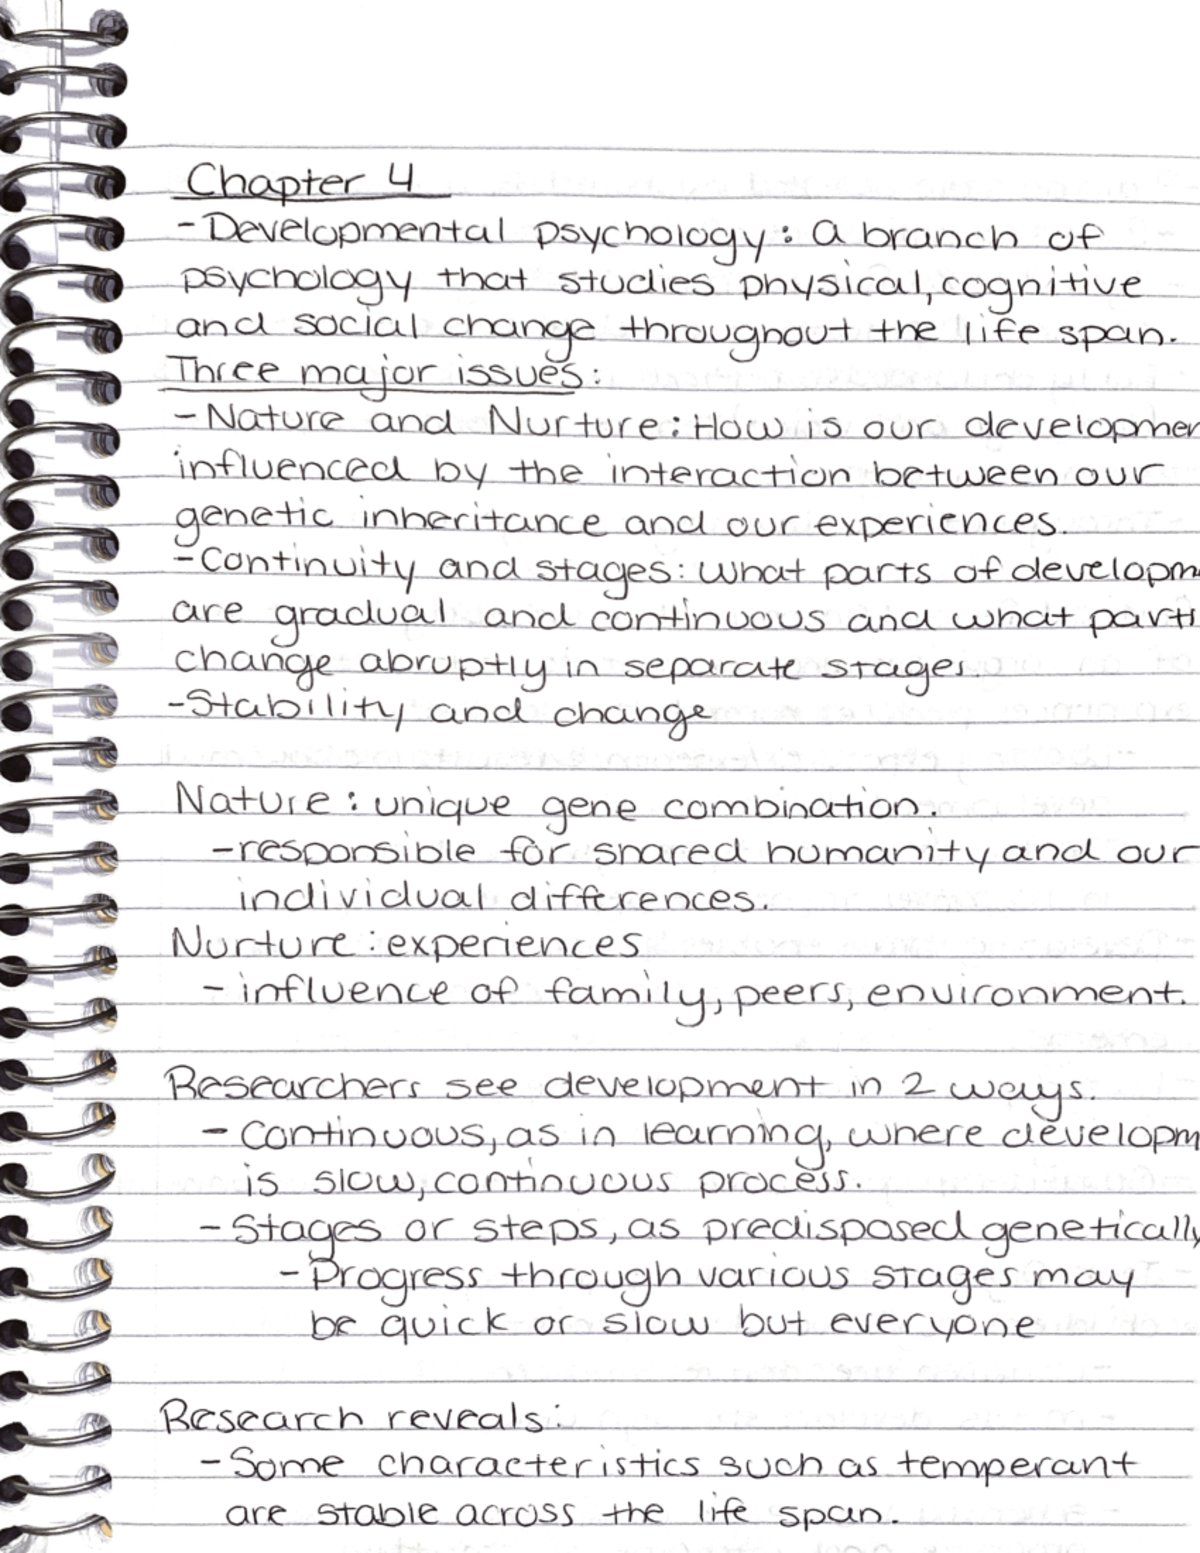 Chapter 4
-Developmental psychology: a branch of
psychology that studies physical, cognitive
and social change throughout the life span.
Three major issues:
-Nature and Nurture: How is our developmen
influenced by the interaction between our
genetic inheritance and our experiences.
-Continuity and stages: what parts of developm
are gradual and continuous and what parti
change abruptly in separate stages.
-Stability and change
Nature: unique gene combination.
-responsible for shared humanity and our
individual differences.
Nurture: experiences
-influence of family, peers, environment.
Researchers see development in 2 ways.
-Continuous, as in learning, where developm
is slow, continuous process.
-Stages or steps, as predisposed genetically
-Progress through various stages may
be quick or slow but everyone
Research reveals:
-Some characteristics such as temperant
are stable across the life span.